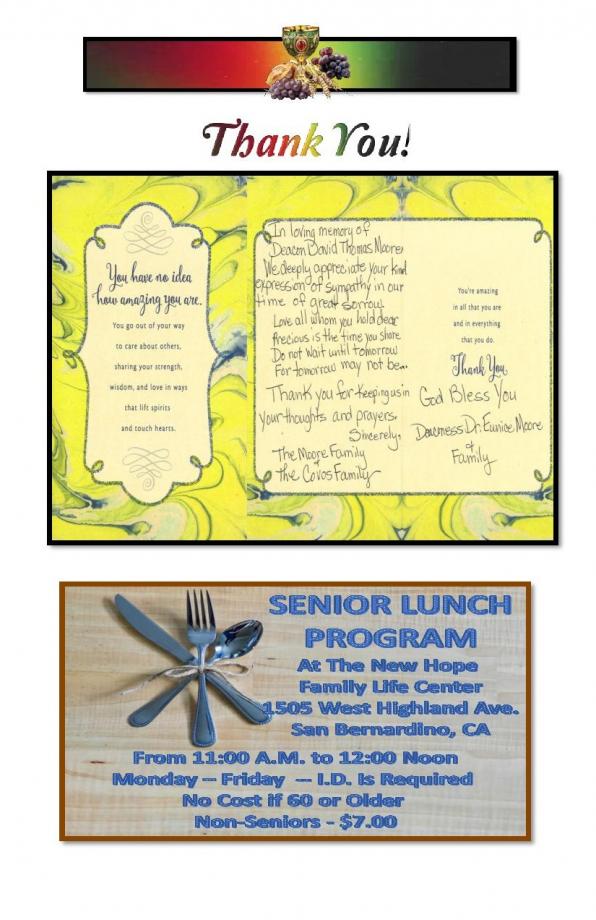 Thank You!
You have no idea
how amazing you are.
You go out of your way
to care about others,
sharing your strength,
wisdom, and love in ways
that lift spirits
and touch hearts.
In loving memory of
Deacon David Thomas Moore,
We deeply appreciate your kind
expression of sympathy in our
time of great sorrow.
Love all whom you hold dear
Precious is the time you share
Do not wait until tomorrow
For tomorrow may not be...
Thank you for keeping us in
your thoughts and prayers.
Sincerely,
The Moore Family
&
The Covos Family
You're amazing
in all that you are
and in everything
that you do.
Thank You
God Bless You
Deaconess Dr. Eunice Moore
&
Family
SENIOR LUNCH
PROGRAM
At The New Hope
Family Life Center
1505 West Highland Ave.
San Bernardino, CA
From 11:00 A.M. to 12:00 Noon
Monday – Friday --- I.D. Is Required
No Cost if 60 or Older
Non-Seniors - $7.00